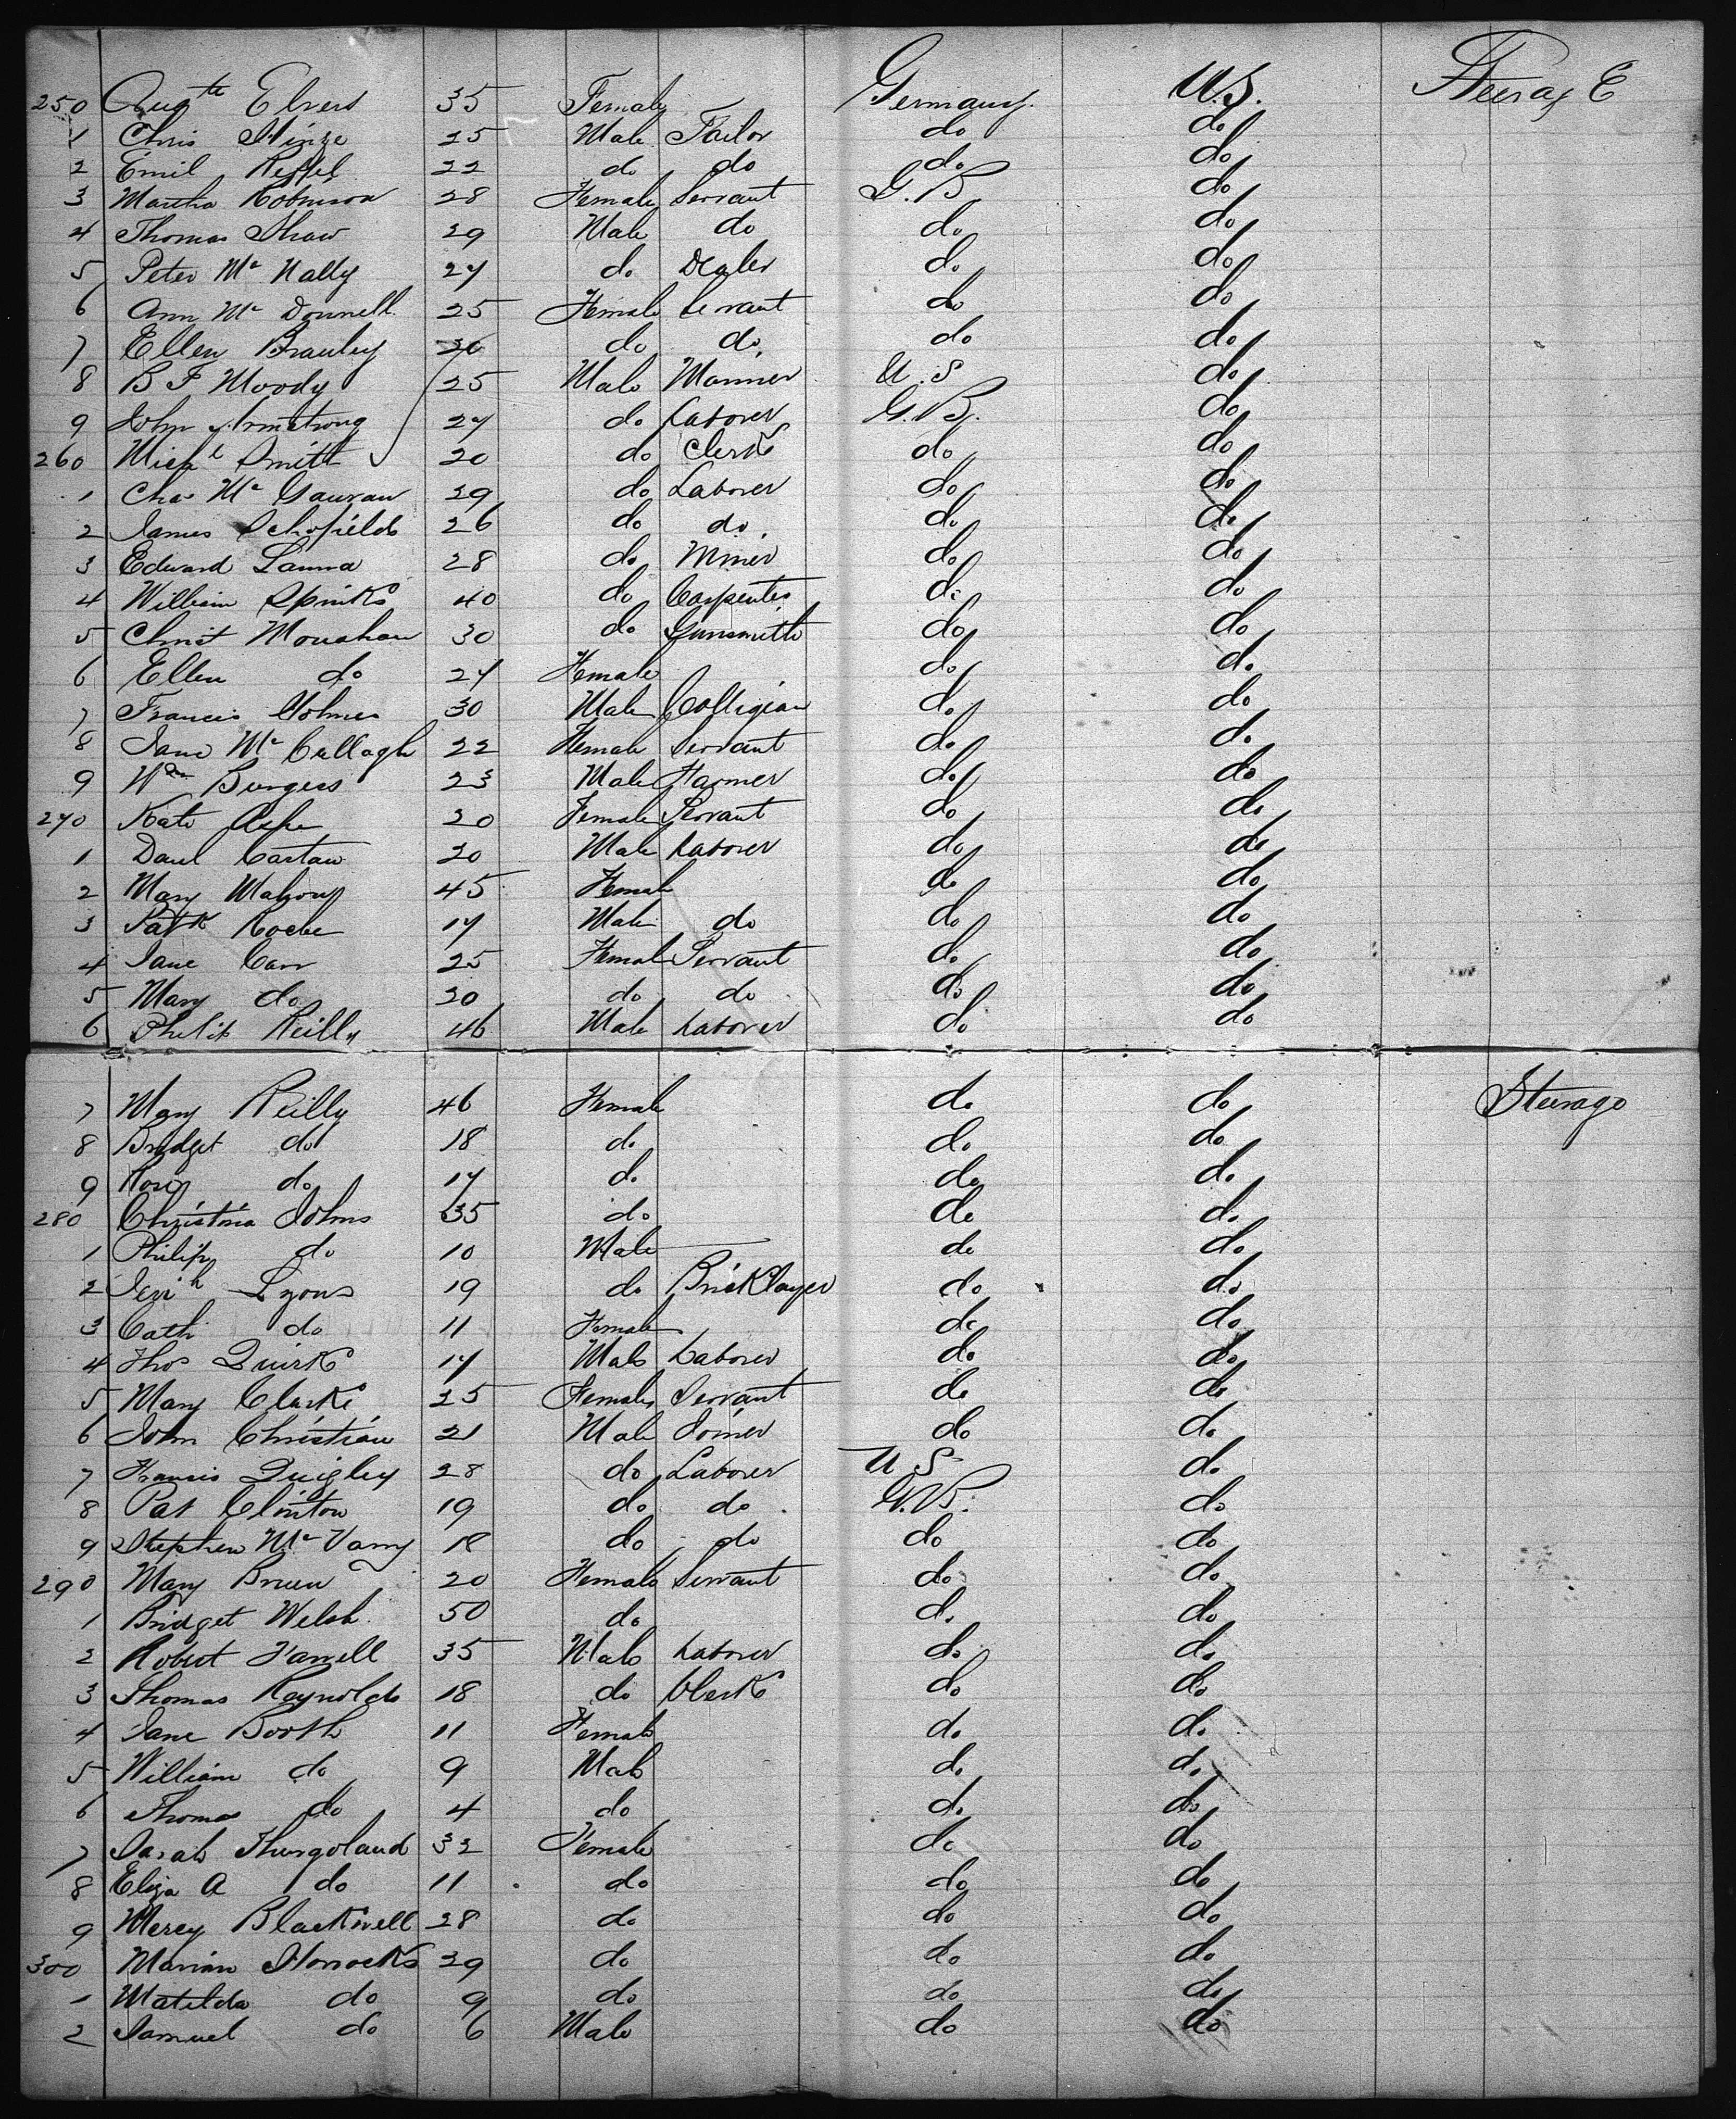 250 Augte Elvers 35 Female Germany. U.S. Steerage
1 Chris Hinze 25 Male Tailor do do
2 Emil Reffel 22 do do do do
3 Martha Robinson 28 Female Servant G.B. do
4 Thomas Shaw 29 Male do do do
5 Peter Mc Nally 27 do Dealer do do
6 Ann Mc Donnell 25 Female Servant do do
7 Ellen Brauley 26 do do do do
8 B F Moody 25 Male Mariner U.S do
9 John Armstrong 27 do Laborer G.B. do
260 Michl Smith 20 do Clerk do do
1 Chas Mc Gauran 29 do Laborer do do
2 James Schofield 26 do do do do
3 Edward Lanna 28 do Miner do do
4 William Spinks 40 do Carpenter do do
5 Christ Monahan 30 do Gunsmith do do
6 Ellen do 27 Female do do
7 Francis Holmes 30 Male Colligian do do
8 Jane Mc Cullagh 22 Female Servant do do
9 Wm Burgess 23 Male Farmer do do
270 Kate 20 Female Servant do do
1 Danl Cartan 20 Male Laborer do do
2 Mary Mahony 45 Female do do
3 Patk Roche 17 Male do do do
4 Jane Carr 25 Female Servant do do
5 Mary do 20 do do do do
6 Philip Reilly 46 Male Laborer do do
7 Mary Reilly 46 Female do do Steerage
8 Bridget do 18 do do do
9 Rosey do 17 do do do
280 Christina Johns 35 do do do
1 Philip do 10 Male do do
2 Jerih Lyons 19 do Bricklayer do do
3 Cath do 11 Female do do
4 Thos Quirk 17 Male Laborer do do
5 Mary Clarke 25 Female Servant do do
6 John Christian 21 Male Joiner do do
7 Francis Quigley 28 do Laborer U S do
8 Pat Clinton 19 do do G.B. do
9 Stephen Mc Varry 18 do do do do
290 Mary Brien 20 Female Servant do do
1 Bridget Welsh 50 do do do
2 Robert Farrell 35 Male Laborer do do
3 Thomas Reynolds 18 do Clerk do do
4 Jane Booth 11 Female do do
5 William do 9 Male do do
6 Thomas do 4 do do do
7 Sarah Thurgoland 32 Female do do
8 Eliza A do 11 do do do
9 Mercy Blackwell 28 do do do
300 Marian Horrocks 29 do do do
1 Matilda do 9 do do do
2 Samuel do 6 Male do do